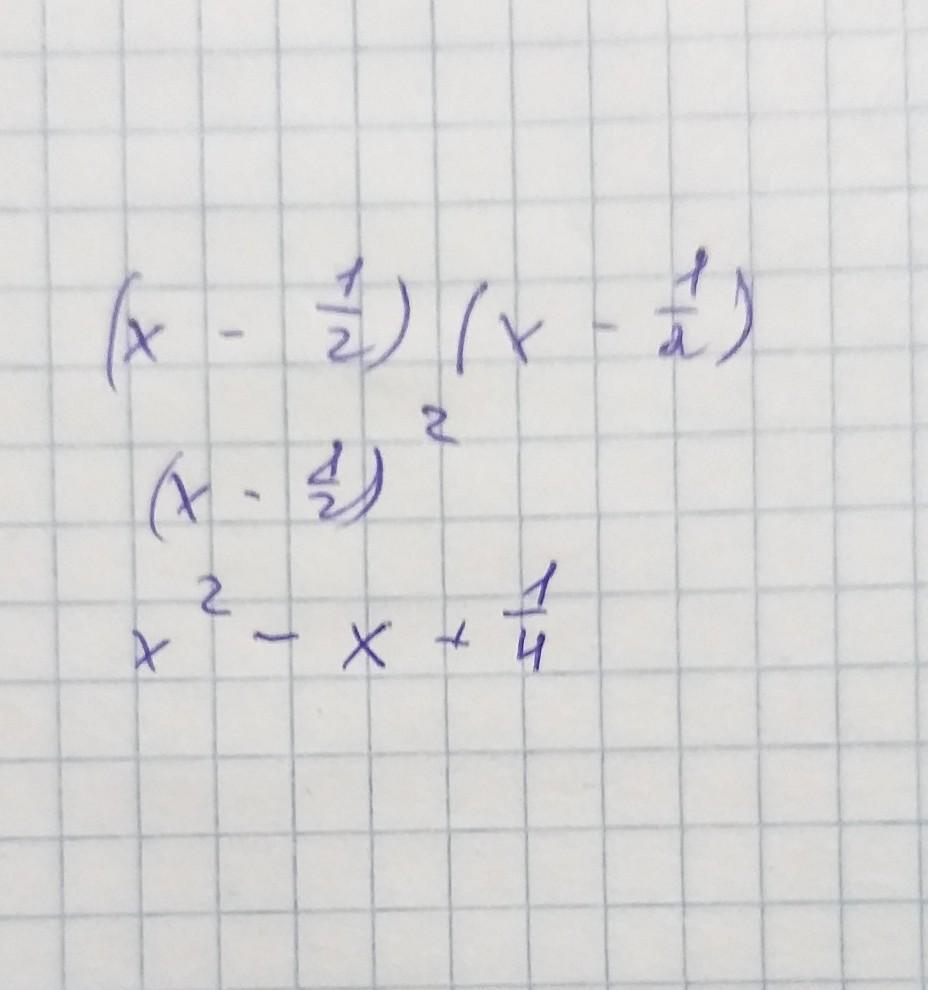 (x - 1/2) (x - 1/2)
(x - 1/2)²
x² - x + 1/4